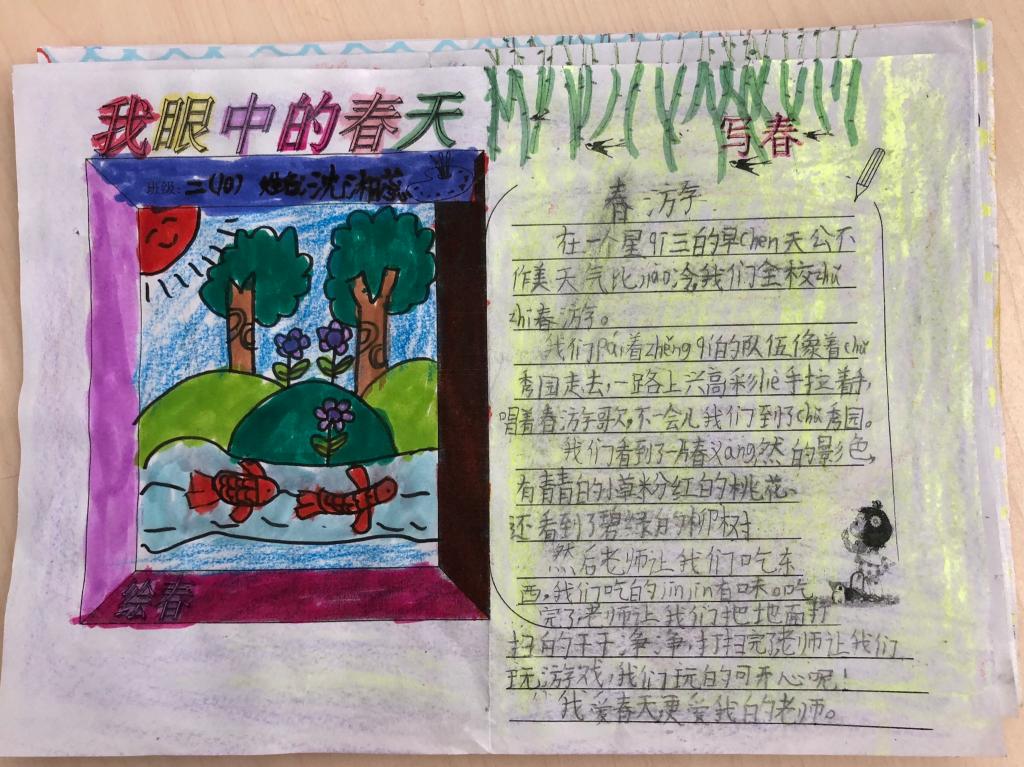 我眼中的春天
班级：二(10) 姓名：沈湘
绘春
写春
春游
在一个星qi三的早chen天公不
作美天气比jiao冷，我们全校
zhi春游。
我们pai着zhěng qi的的队伍像着chu
秀园走去，一路上兴高彩lie手拉着手，
唱着春游歌，不一会儿我们到了chu秀园。
我们看到了一片春义ang然的景色，
有青青的小草粉红的桃花、
还看到了碧绿的柳树
然后老师让我们吃东
西。我们吃的jinjin有味。吃
完了老师让我们把地面打
扫的干干净净，打扫完了老师让我们
玩游戏，我们玩的可开心呢！
我爱春天更爱我的老师。